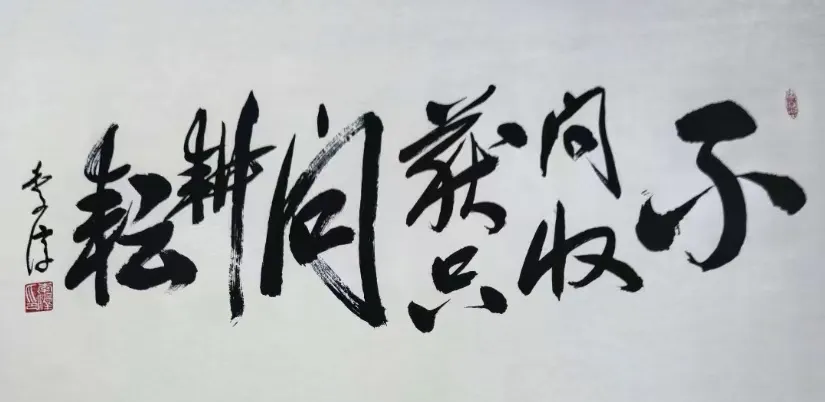 不问收获只问耕耘
李